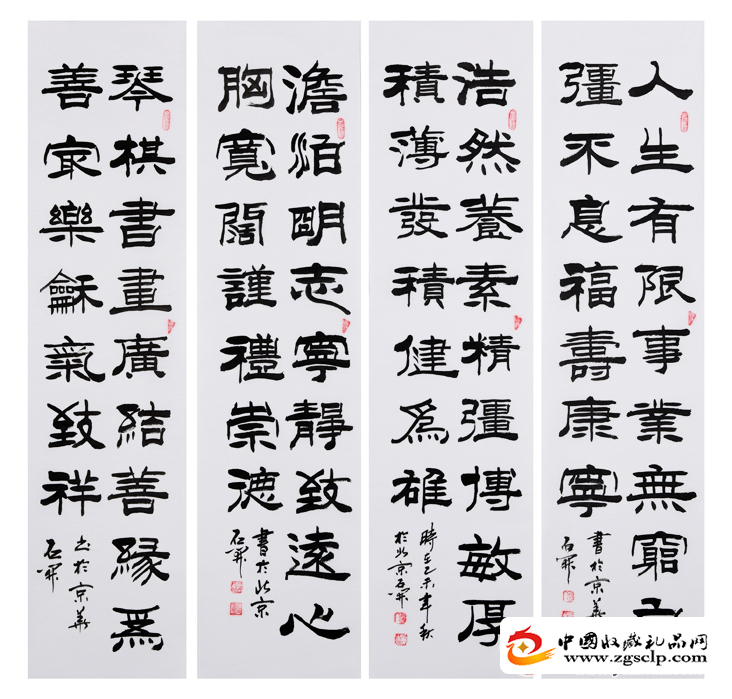 人生有限事業無窮
彊不息福壽康寧
書於京華
石開
浩然養素精彊博敏厚
積薄發積健爲雄
時在乙未年秋
於北京石開
澹泊明志寧靜致遠心
胸寬闊謹禮崇德
書於北京
石開
琴棋書畫廣結善緣爲
善冣樂龢氣致祥
書於京華
石開
中國收藏礼品网
www.zgsclp.com